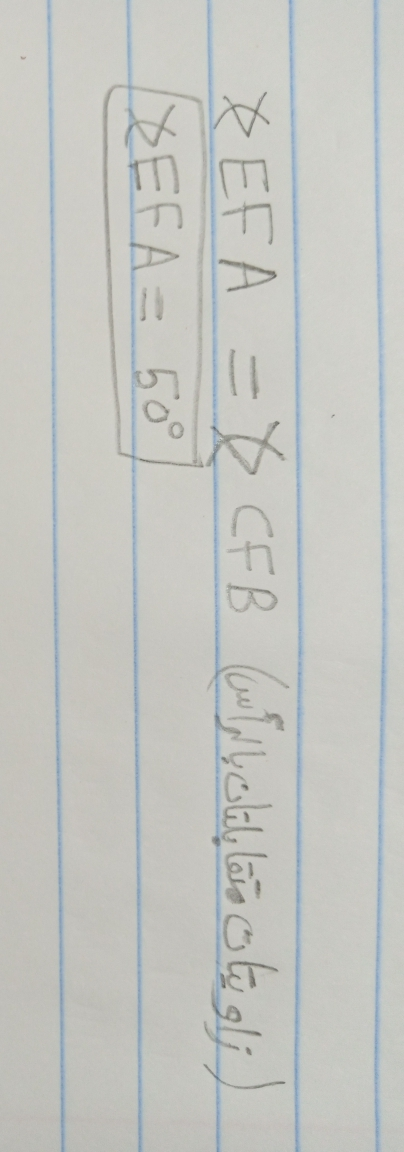 ∢EFA = ∢CFB (زاويتان متقابلتان بالرأس)
∢EFA = 50°